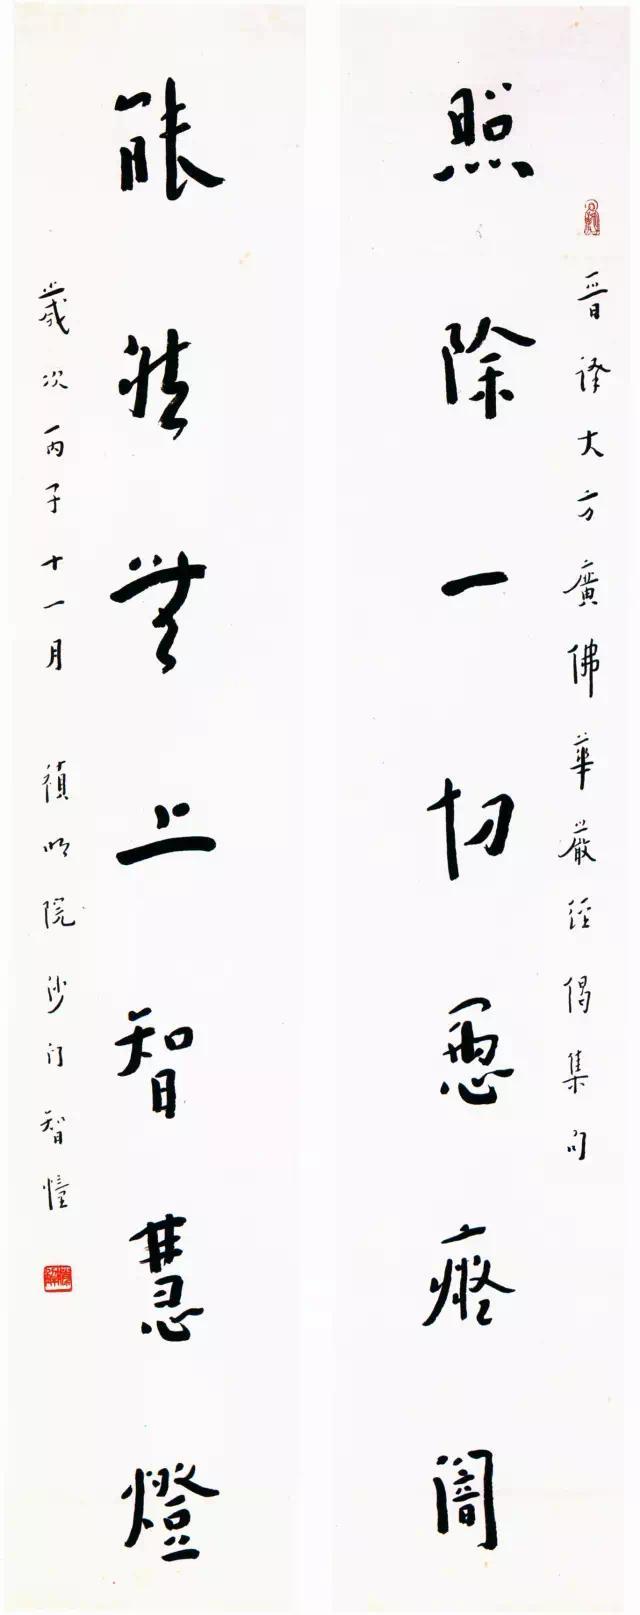 晉譯大方廣佛華嚴經偈集句
照除一切愚癡闇
能然無上智慧燈
歲次丙子十一月 禎明院沙門智幢